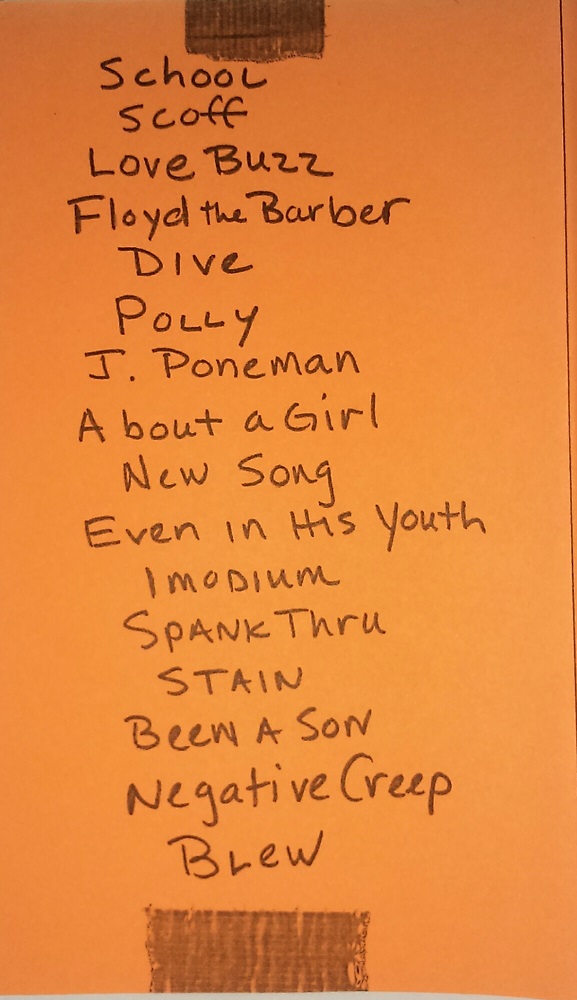 School
Scoff
Love Buzz
Floyd the Barber
Dive
Polly
J. Poneman
About a Girl
New Song
Even in His Youth
Imodium
Spank Thru
STAIN
Been A Son
Negative Creep
Blew